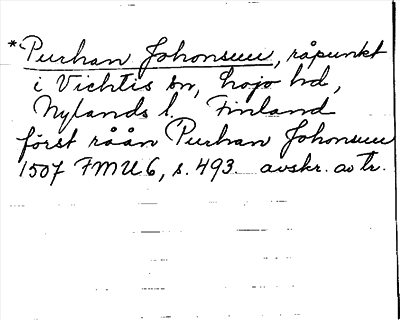 *Purhan Johonsuu, råpunkt
i Vichtis sn, Lojo hd,
Nylands l. Finland
först råån Purhan Johonsuu
1507 FMU 6, s. 493. avskr. av tr.